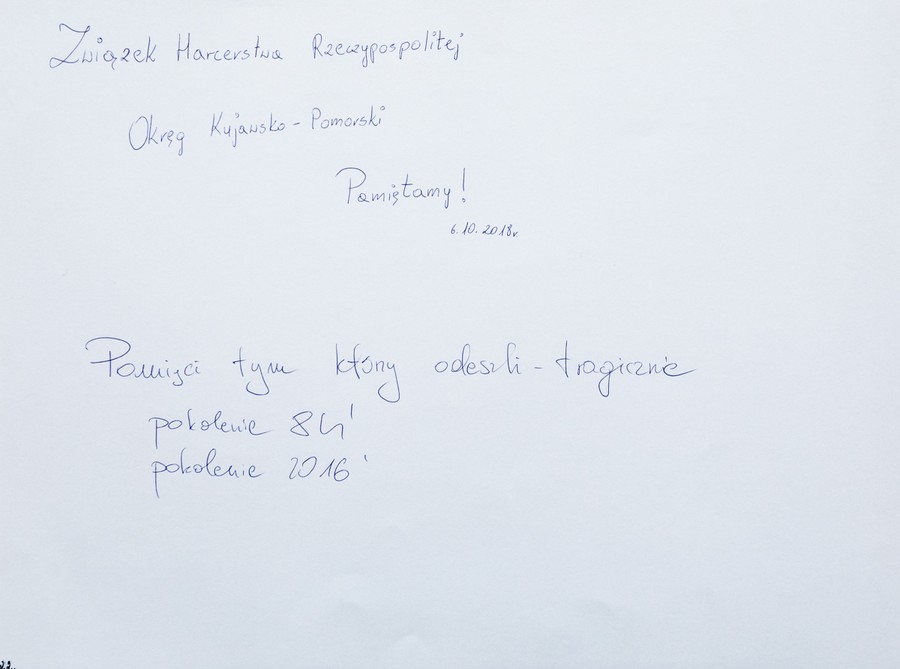 Związek Harcerstwa Rzeczypospolitej
Okręg Kujawsko-Pomorski
Pamiętamy!
6.10.2018r.
Pamięci tym który odeszli - tragicznie
pokolenie 84'
pokolenie 2016'